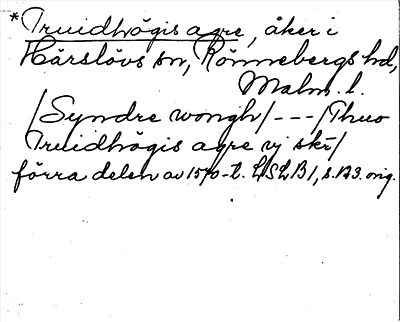 *Truidhögis agre, åker i
Härslövs sn, Rönnebergs hd,
Malm. l.
/Syndre wongh/ --- /Thuo
Truidhögis agre vj skr/
förra delen av 1570-t. LSLB 1, s. 123. orig.